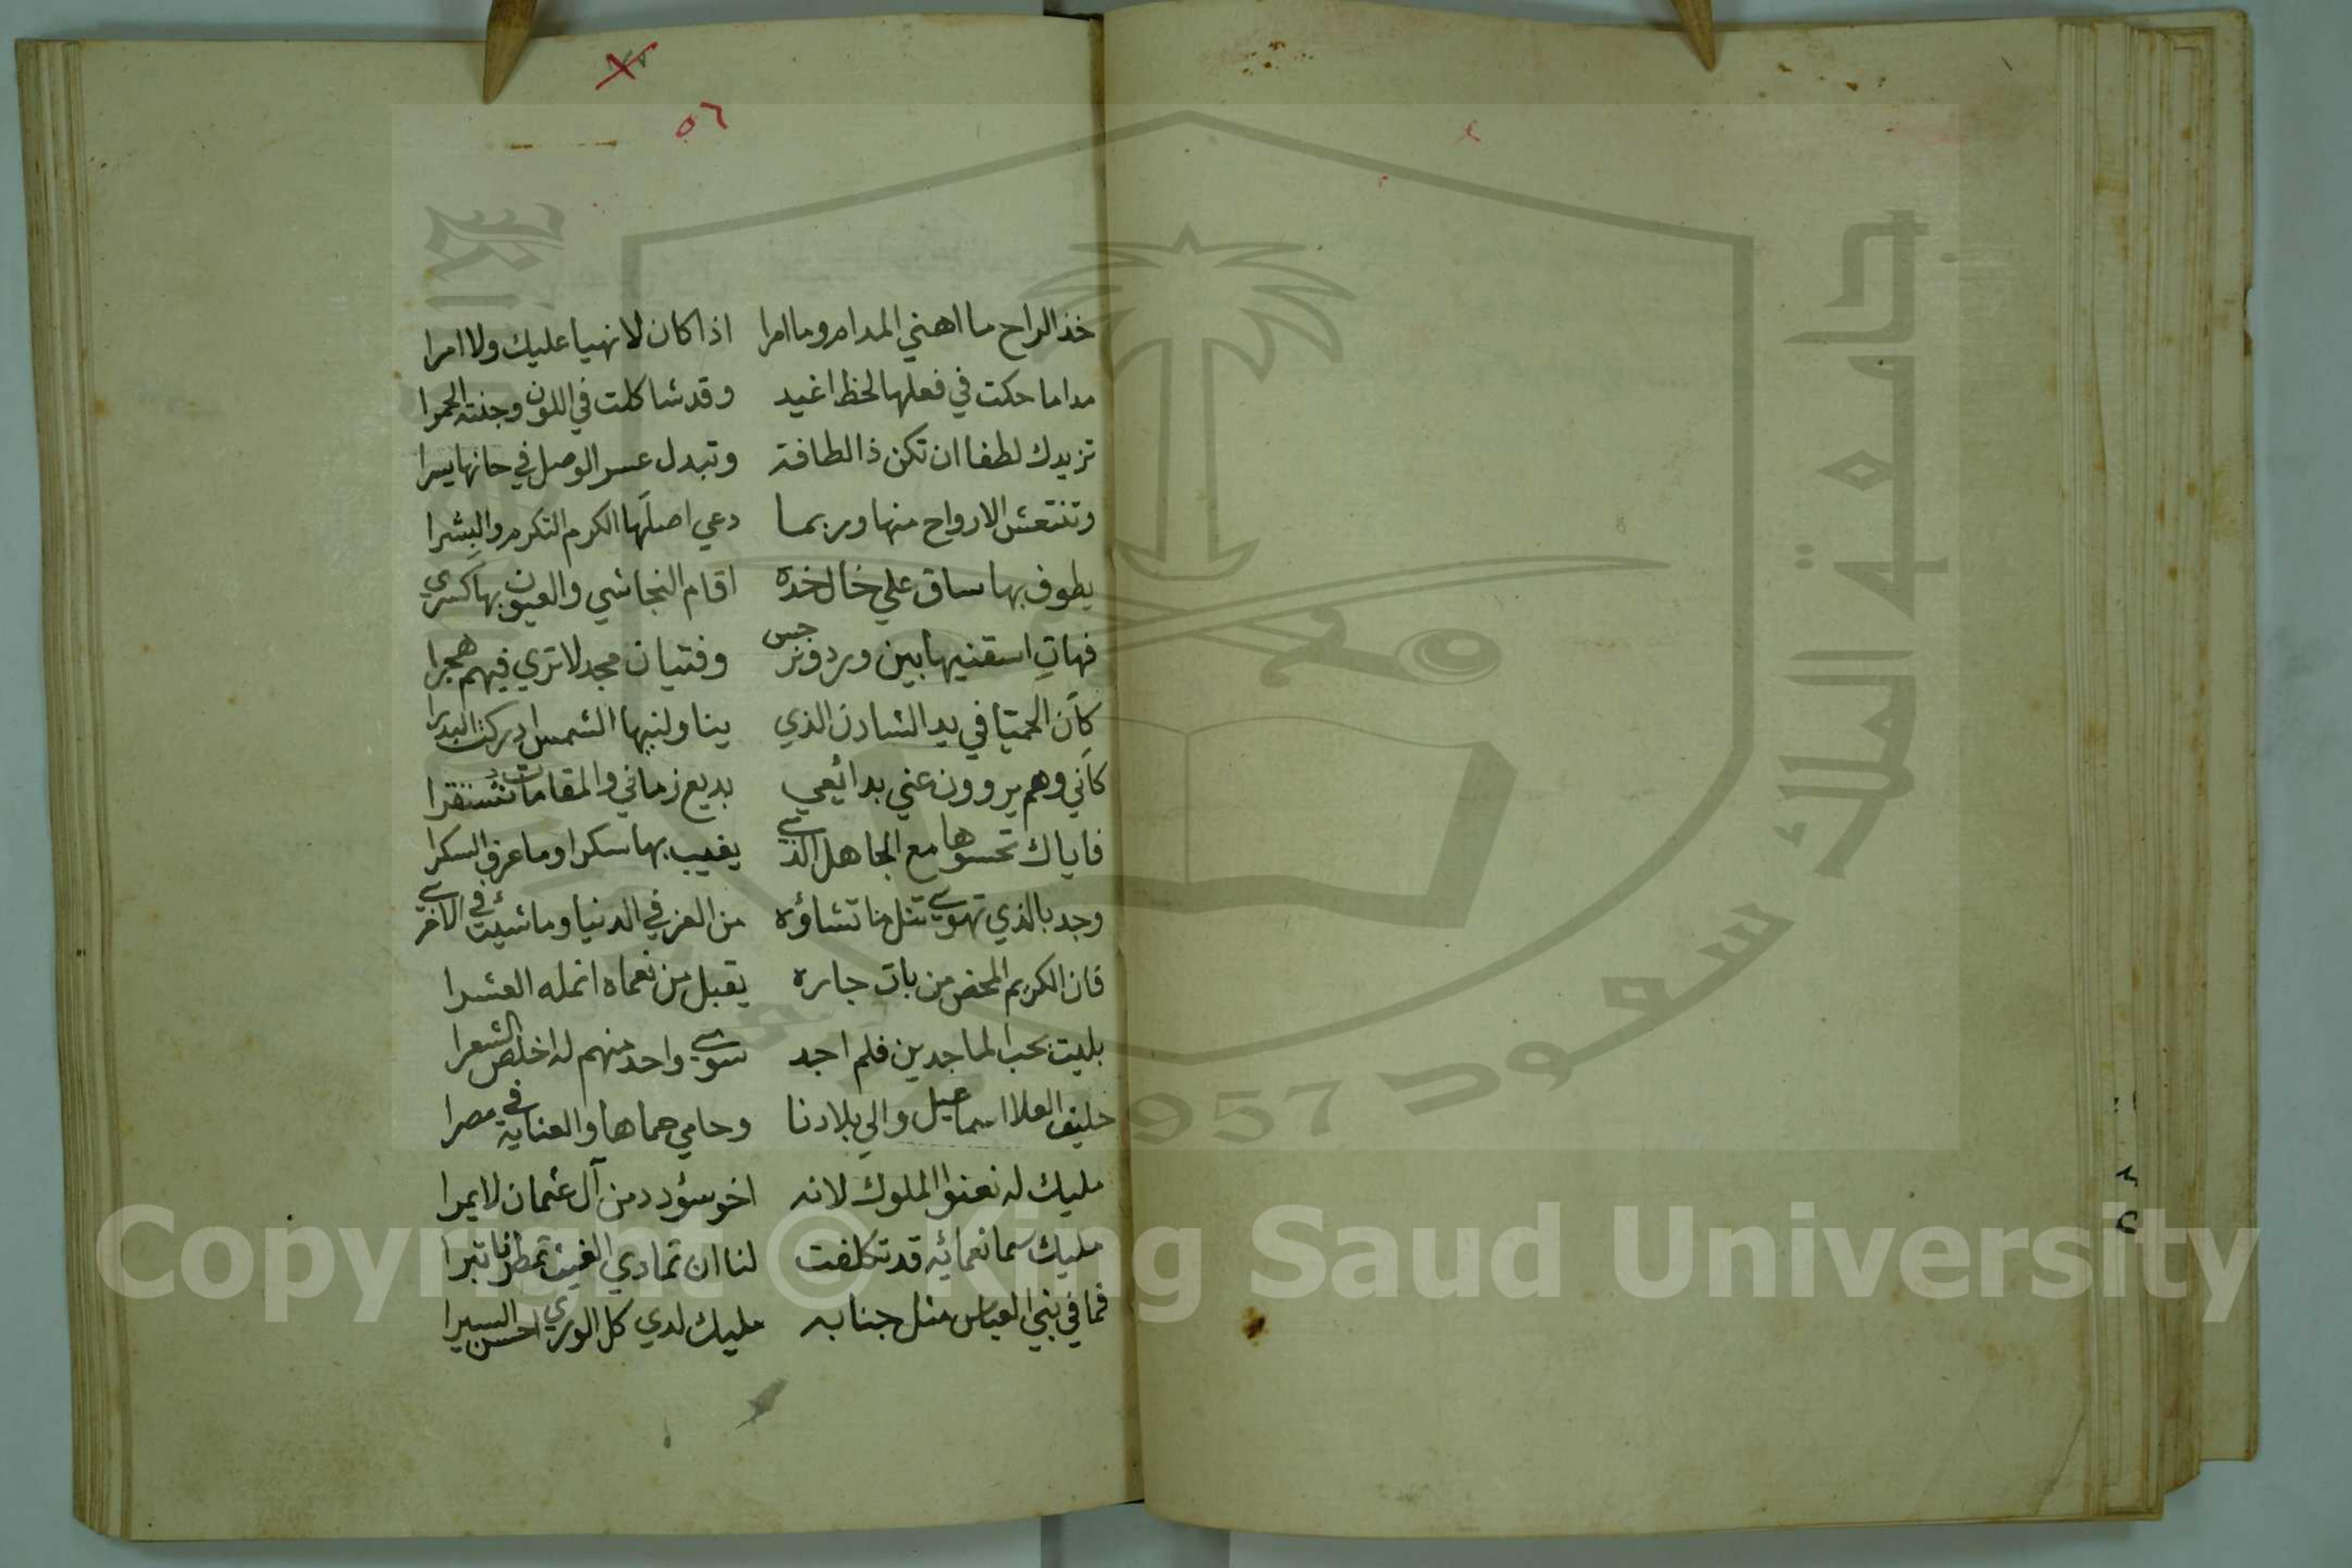 ٥٦
خذ الراح ما اهني المدام وما امرا اذا كان لا نهيا عليك ولا امرا
مداما حكت في فعلها لحظ اغيد وقد شاكلت في اللون وجنته الحمرا
تزيدك لطفا ان تكن ذا لطافة وتبدل عسر الوصل في حانها يسرا
وتنتعش الارواح منها وربما دعي اصلَها الكرم التكرم والبِشرا
يطوف بها ساق علي خال خده اقام النجاشي والعيون بها كَسري
فهاتِ اسقنيها بين ورد ونرجس وفتيان مجد لا تري فيهم هجرا
كأن الحميّا في يد الشادن الذي يناولنيها الشمس ادركت البدرا
كأني وهم يروون عني بدائعي بديع زماني والمقامات تستقرا
فاياك تحسوها مع الجاهل الذي يغيب بها سكرا وما عرف السكرا
وجد بالذي تهوي تنل ما تشاؤه من العز في الدنيا وما شئت في الاخري
فان الكريم المحض من بات جاره يقبل من نعماه انمله العشرا
بليت بحب الماجدين فلم اجد سوي واحد منهم له اخلص الشعرا
حليف العلا اسماعيل والي بلادنا وحامي حماها والعناية في مصرا
مليك له تعنوا الملوك لانه اخو سؤدد من آل عثمان لا يمرا
مليك سما نعمائه قد تكلفت لنا ان تمادي الغيث تمطرنا تبرا
فما في بني العباس مثل جنابه مليك لدي كل الوري احسن السيرا
جامعة الملك سعود
1957
Copyright © King Saud University